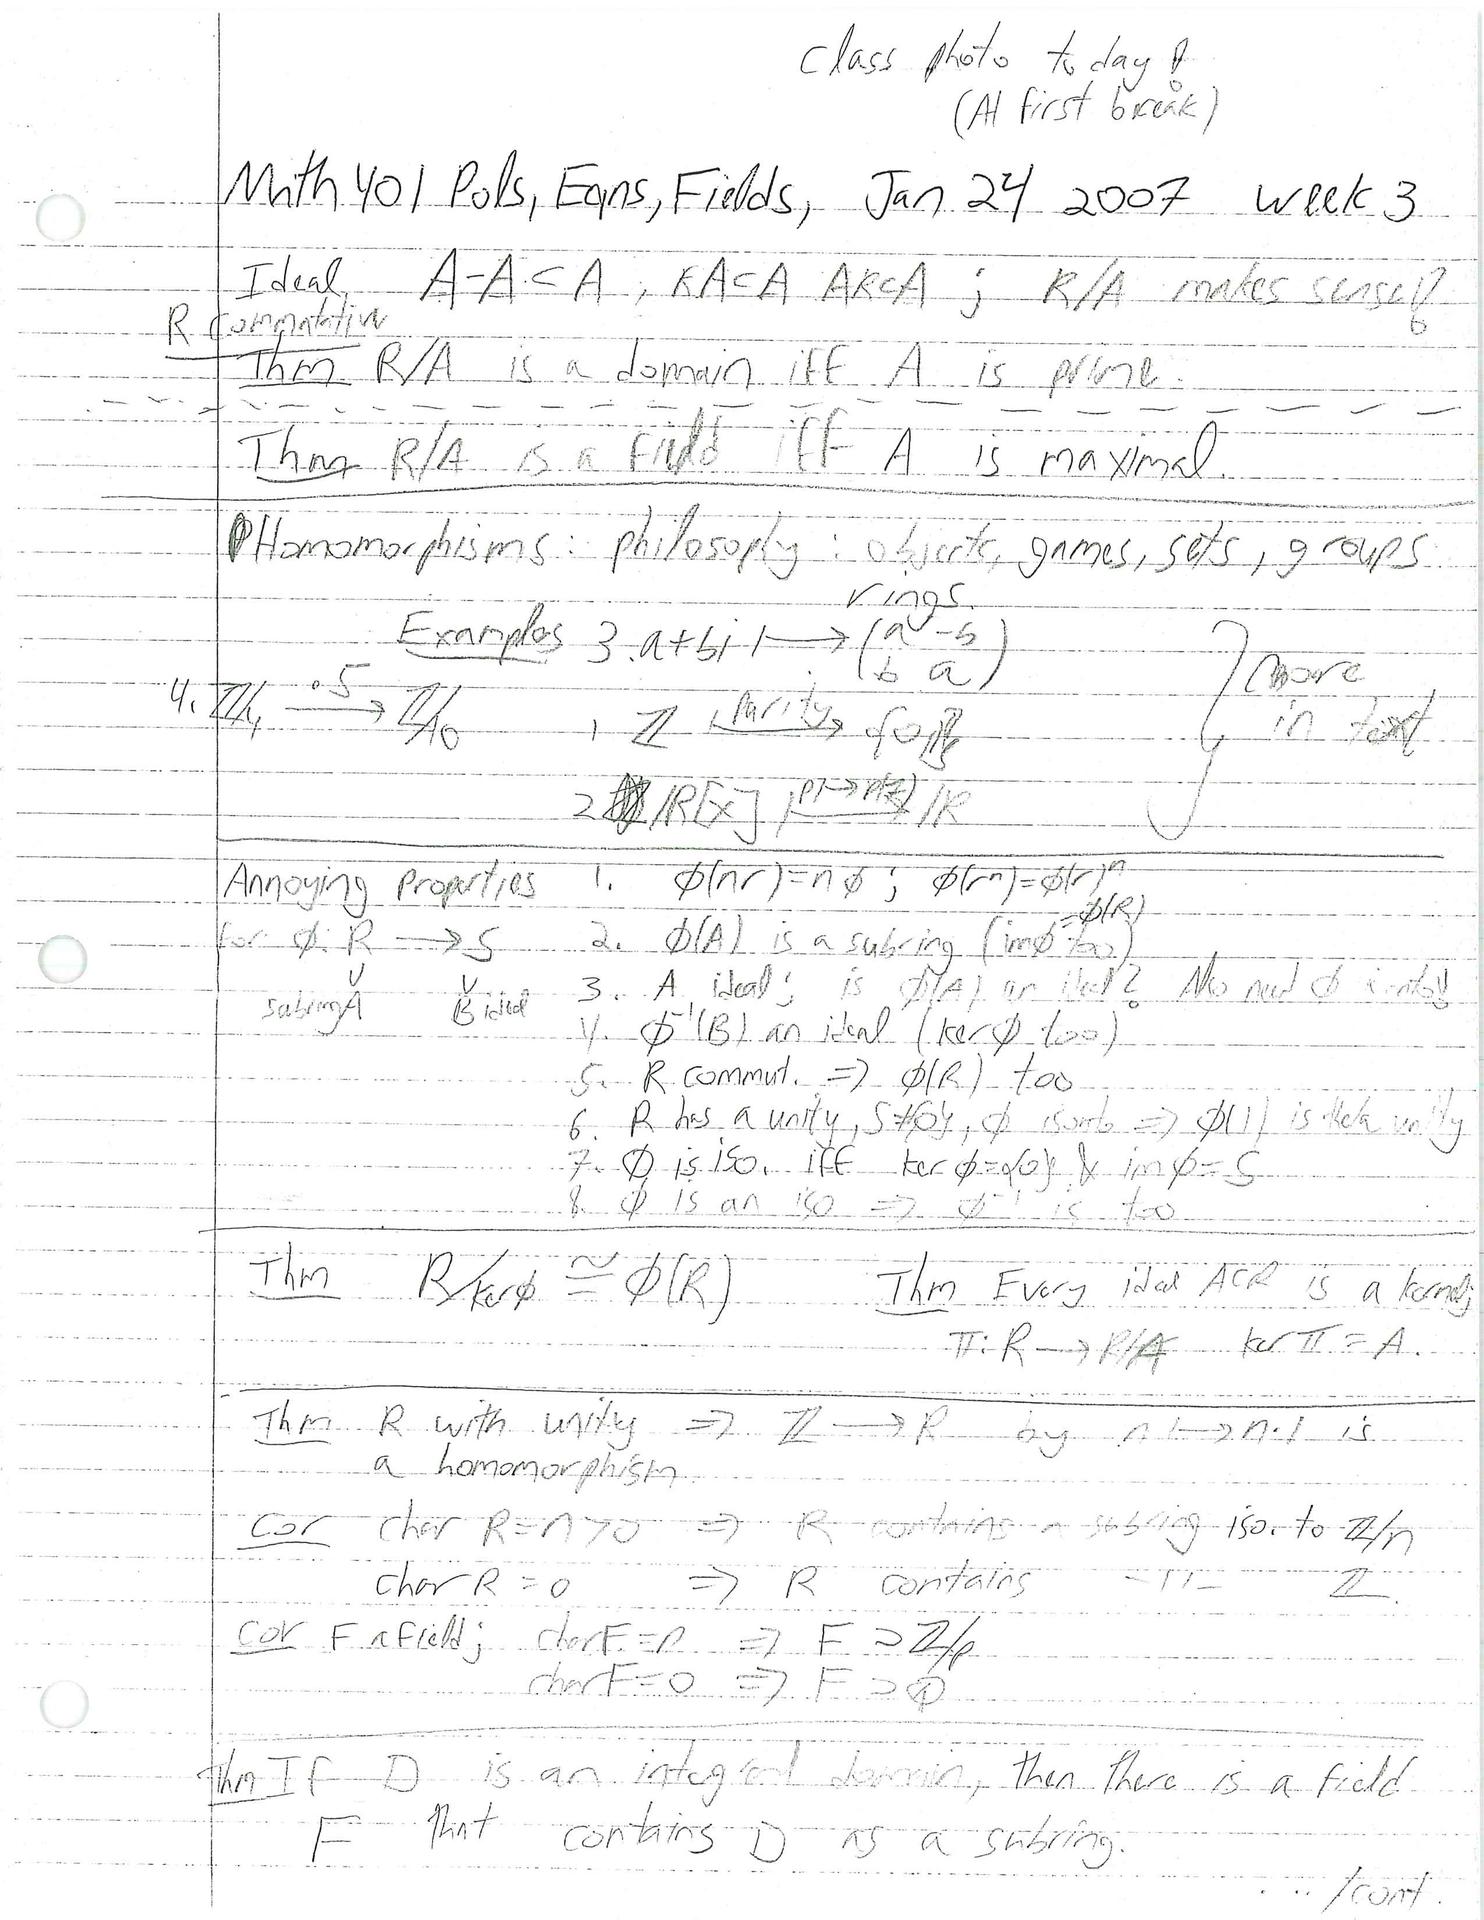 Class photo today!
(At first break)
Math 401 Pols, Eqns, Fields, Jan 24 2007 week 3
Ideal A-A⊂A, RA⊂A AR⊂A; R/A makes sense!
R commutative
Thm R/A is a domain iff A is prime.
Thm R/A is a field iff A is maximal.
Homomorphisms: philosophy: objects, games, sets, groups
rings.
Examples 3. a+bi ↦ (a -b
b a)
4. Z/4 —·5→ Z/10
1 Z —parity→
2 R[x] R
more
in text
Annoying Properties 1. φ(nr)=nφ; φ(rⁿ)=φ(r)ⁿ
for φ: R → S 2. φ(A) is a subring (imφ=φ(R) too)
subring A B ideal 3. A ideal; is φ(A) an ideal? Also need φ is onto!
4. φ⁻¹(B) an ideal (kerφ too)
5. R commut. ⇒ φ(R) too
6. R has a unity, S≠{0}, φ is onto ⇒ φ(1) is unity
7. φ is iso. iff kerφ={0} & imφ=S
8. φ is an iso ⇒ φ⁻¹ is too
Thm R/kerφ ≅ φ(R) Thm Every ideal A⊂R is a kernel;
π: R → R/A ker π = A.
Thm R with unity ⇒ Z → R by n ↦ n·1 is
a homomorphism.
Cor char R=n>0 ⇒ R contains a subring iso. to Z/n
char R=0 ⇒ R contains -11- Z.
Cor F a field; char F=p ⇒ F⊃Z/p
char F=0 ⇒ F⊃Q
Thm If D is an integral domain, then there is a field
F that contains D as a subring.
.... /cont.